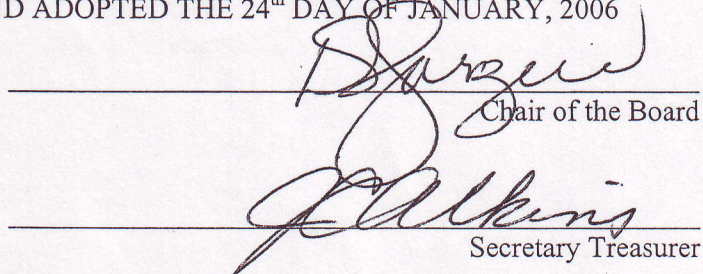 D ADOPTED THE 24th DAY OF JANUARY, 2006
Chair of the Board
JC Atkins
Secretary Treasurer